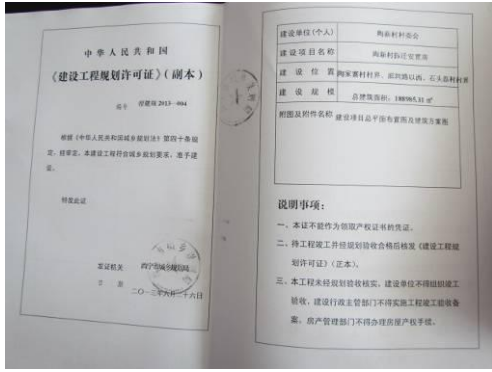 中华人民共和国
《建设工程规划许可证》（副本）
编号 建规 2013-004
根据《中华人民共和国城乡规划法》第四十条规
定，经审定，本建设工程符合城乡规划要求，准予建
设。
特发此证
发证机关 西宁市城乡规划局
日 期
二〇一三年六月二十六日
建设单位(个人) 陶新村村委会
建设项目名称 陶新村拆迁安置房
建 设 位 置 陶家寨村村界、 以西、石头磊村村界
建 设 规 模 总建筑面积：188965.11 ㎡
附图及附件名称 建设项目总平面布置图及建筑方案图
说明事项：
一、本证不能作为领取产权证书的凭证。
二、待工程竣工并经规划验收合格后核发《建设工程规
划许可证》（正本）。
三、本工程未经规划验收核实，建设单位不得组织竣工
验收，建设行政主管部门不得实施工程竣工验收备
案，房产管理部门不得办理房屋产权手续。